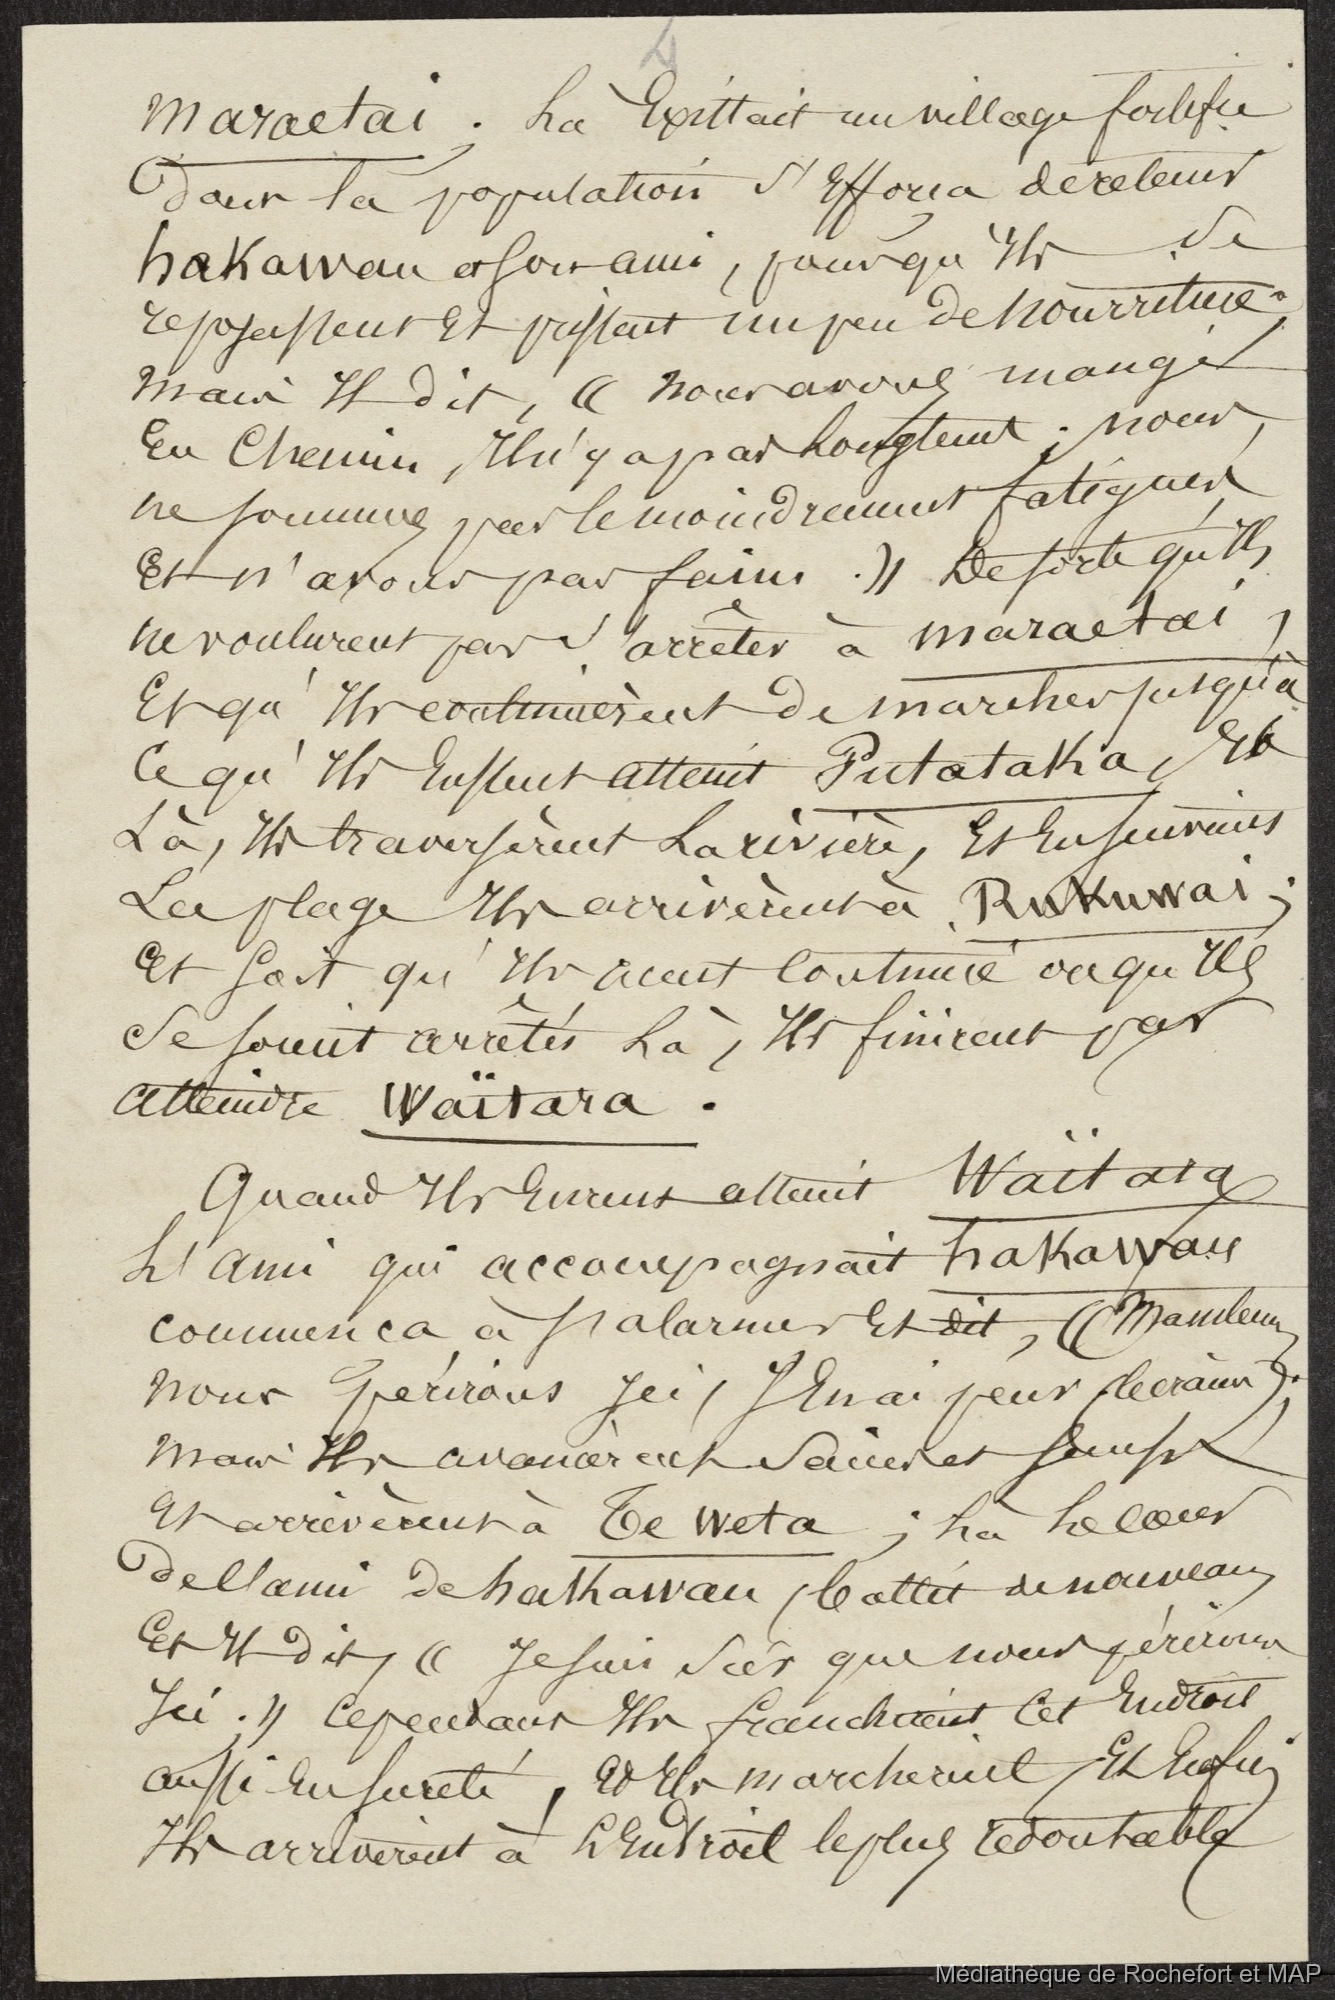 4
Maraetai ; Là Existait un village fortifié
Dont la population s'Efforça de retenir
hakawau et son ami, pour qu'Ils se
reposassent Et prissent un peu de nourriture.
Mais Il dit, « nous avons mangé
En Chemin, Il n'y a pas Longtemt ; nous
ne sommes pas le moindrement fatigués,
Et n'avons pas faim. » De sorte qu'Ils
ne voulurent pas s'arrêter à Maraetai,
Et qu'Ils continuèrent de marcher jusqu'à
Ce qu'Ils Eussent atteint Putataka, Et
Là, Ils traversèrent La rivière, Et En suivant
La plage Ils arrivèrent à Rukuwai ;
Et Soit qu'Ils aient Continué ou qu'Ils
se soient arrêtés Là, Ils finirent par
atteindre Waïtara.
Quand Ils Eurent atteint Waïtara
L'ami qui accompagnait hakawau
commença à s'alarmer Et dit, « Maintenant
nous périrons Ici, J'En ai peur
Mais Ils avancèrent Sains et Saufs
Et arrivèrent à Te Weta ; Là Le cœur
De l'ami de hakawau, battit de nouveau,
Et Il dit, « Je suis sûr que nous périrons
Ici. » Cependant Ils franchirent Cet Endroit
aussi En sureté, Et Ils marchèrent, Et Enfin
Ils arrivèrent à L'Endroit le plus redoutable
Médiathèque de Rochefort et MAP